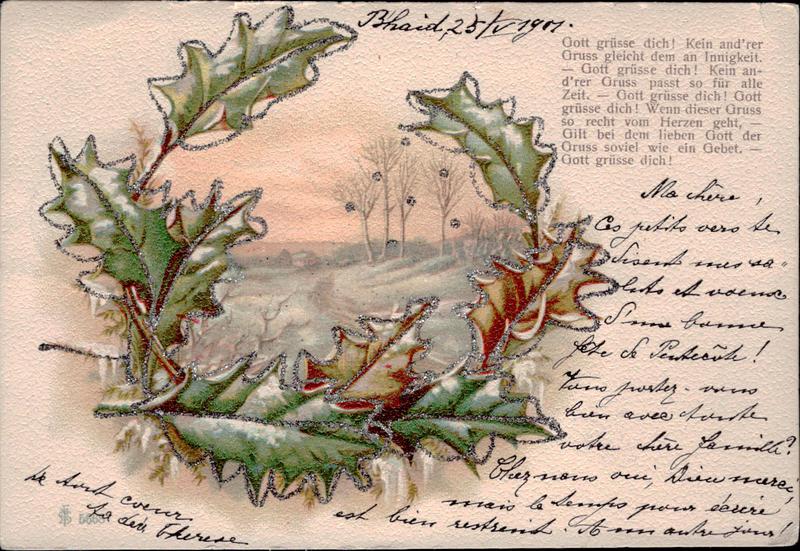 Bhaid, 25/V 1901.
Gott grüsse dich! Kein and'rer
Gruss gleicht dem an Innigkeit.
— Gott grüsse dich! Kein an-
d'rer Gruss passt so für alle
Zeit. — Gott grüsse dich! Gott
grüsse dich! Wenn dieser Gruss
so recht vom Herzen geht, —
Gilt bei dem lieben Gott der
Gruss soviel wie ein Gebet. —
Gott grüsse dich!
Ma chère,
Ces petits vers te
disent mes sa-
luts et voeux
d'une bonne
fête de Pentecôte!
Vous portez-vous
bien avec toute
votre chère famille?
Chez nous oui, Dieu merci,
mais le temps pour écrire
est bien restreint. A un autre jour!
de tout coeur
ta dév. Therese